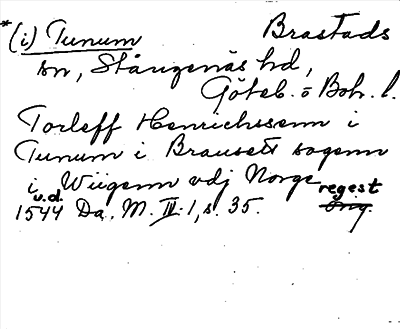 *(i) Tunum Brastads
sn, Stångenäs hd,
Göteb. o Boh. l.
Torleff Henrichssenn i
Tunum i Brausett sogenn
i Wiigenn vdj Norge
u.d. regest
1544 Da. M. IV. 1, s. 35. Orig.